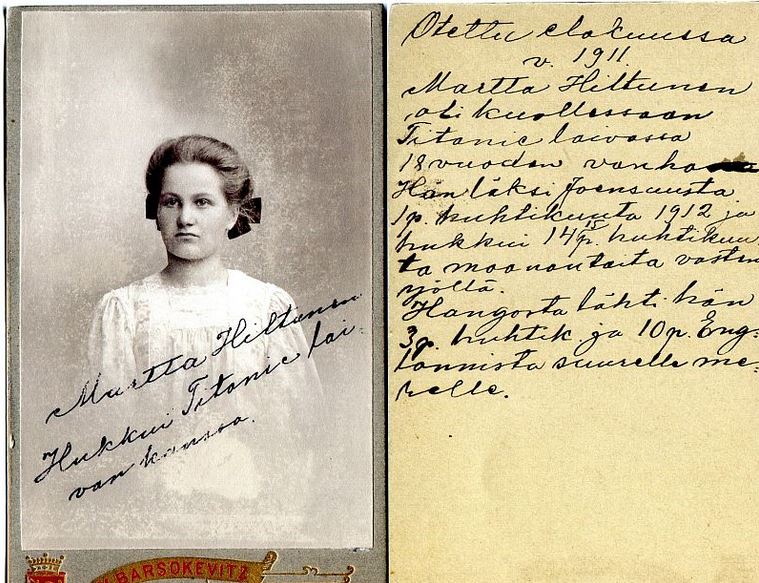 Martta Hiltunen
Hukkui Titanic lai-
van kanssa.
BARSOKEVITZ
Otettu elokuussa
v. 1911.
Martta Hiltunen
oli kuollessaan
Titanic laivassa
18 vuoden vanha
Hän läksi Joensuusta
1p. huhtikuuta 1912 ja
hukkui 14 p. huhtikuu
ta maanantaita vasten
yöllä.
Hangosta lähti hän
3p. huhtik ja 10p. Eng-
lannista suurelle me-
relle.